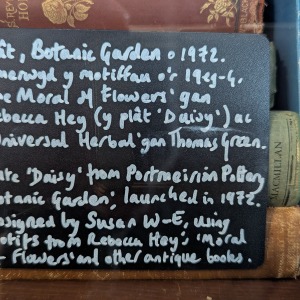 ât, Botanic Garden o 1972.
merwyd y motiffau o'r 19eg-G.
e Moral of Flowers' gan
ebecca Hey (y plât 'Daisy') ac
niversal Herbal' gan Thomas Green.
ate 'Daisy' from Portmeirion Pottery
otanic Garden', launched in 1972.
esigned by Susan W-E, using
otifs from Rebecca Hey's 'Moral
Flowers' and other antique books.
MACMILLAN